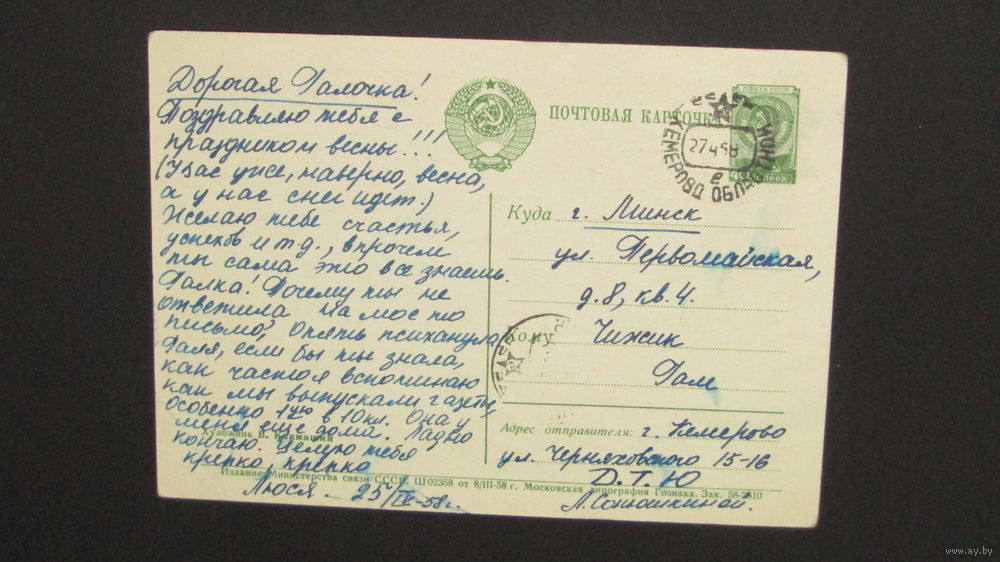 Дорогая Галочка!
Поздравляю тебя с
праздником весны!!!
(У вас уже, наверно, весна,
а у нас снег идет.)
Желаю тебе счастья,
успехов и т.д., впрочем
ты сама это все знаешь.
Галка! Почему ты не
ответила на мое то
письмо? Опять психанула?
Галя, если бы ты знала,
как часто я вспоминаю
как мы выпускали газеты,
особенно 1ую в 10кл. Она у
меня еще дома. Ладно
кончаю. Целую тебя
крепко, крепко
Люся. 25/IV-58г.
Художник В. Климашин
ПОЧТОВАЯ КАРТОЧКА
ПОЧТА СССР
КЕМЕРОВО
27 4 58
Куда г. Минск
ул. Первомайская,
д. 8, кв. 4.
Кому Чижик
Гале
Адрес отправителя: г. Кемерово
ул. Черняховского 15-16
Д.Т.Ю
Издание Министерства связи СССР. Ш 02358 от 8/III-58 г. Московская типография Гознака. Зак. 58-2810
www.ay.by